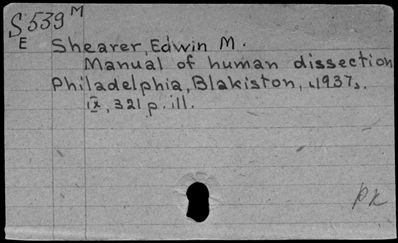 S539 M
E
Shearer, Edwin M.
Manual of human dissection
Philadelphia, Blakiston, [1937].
ix, 321 p. ill.
pk